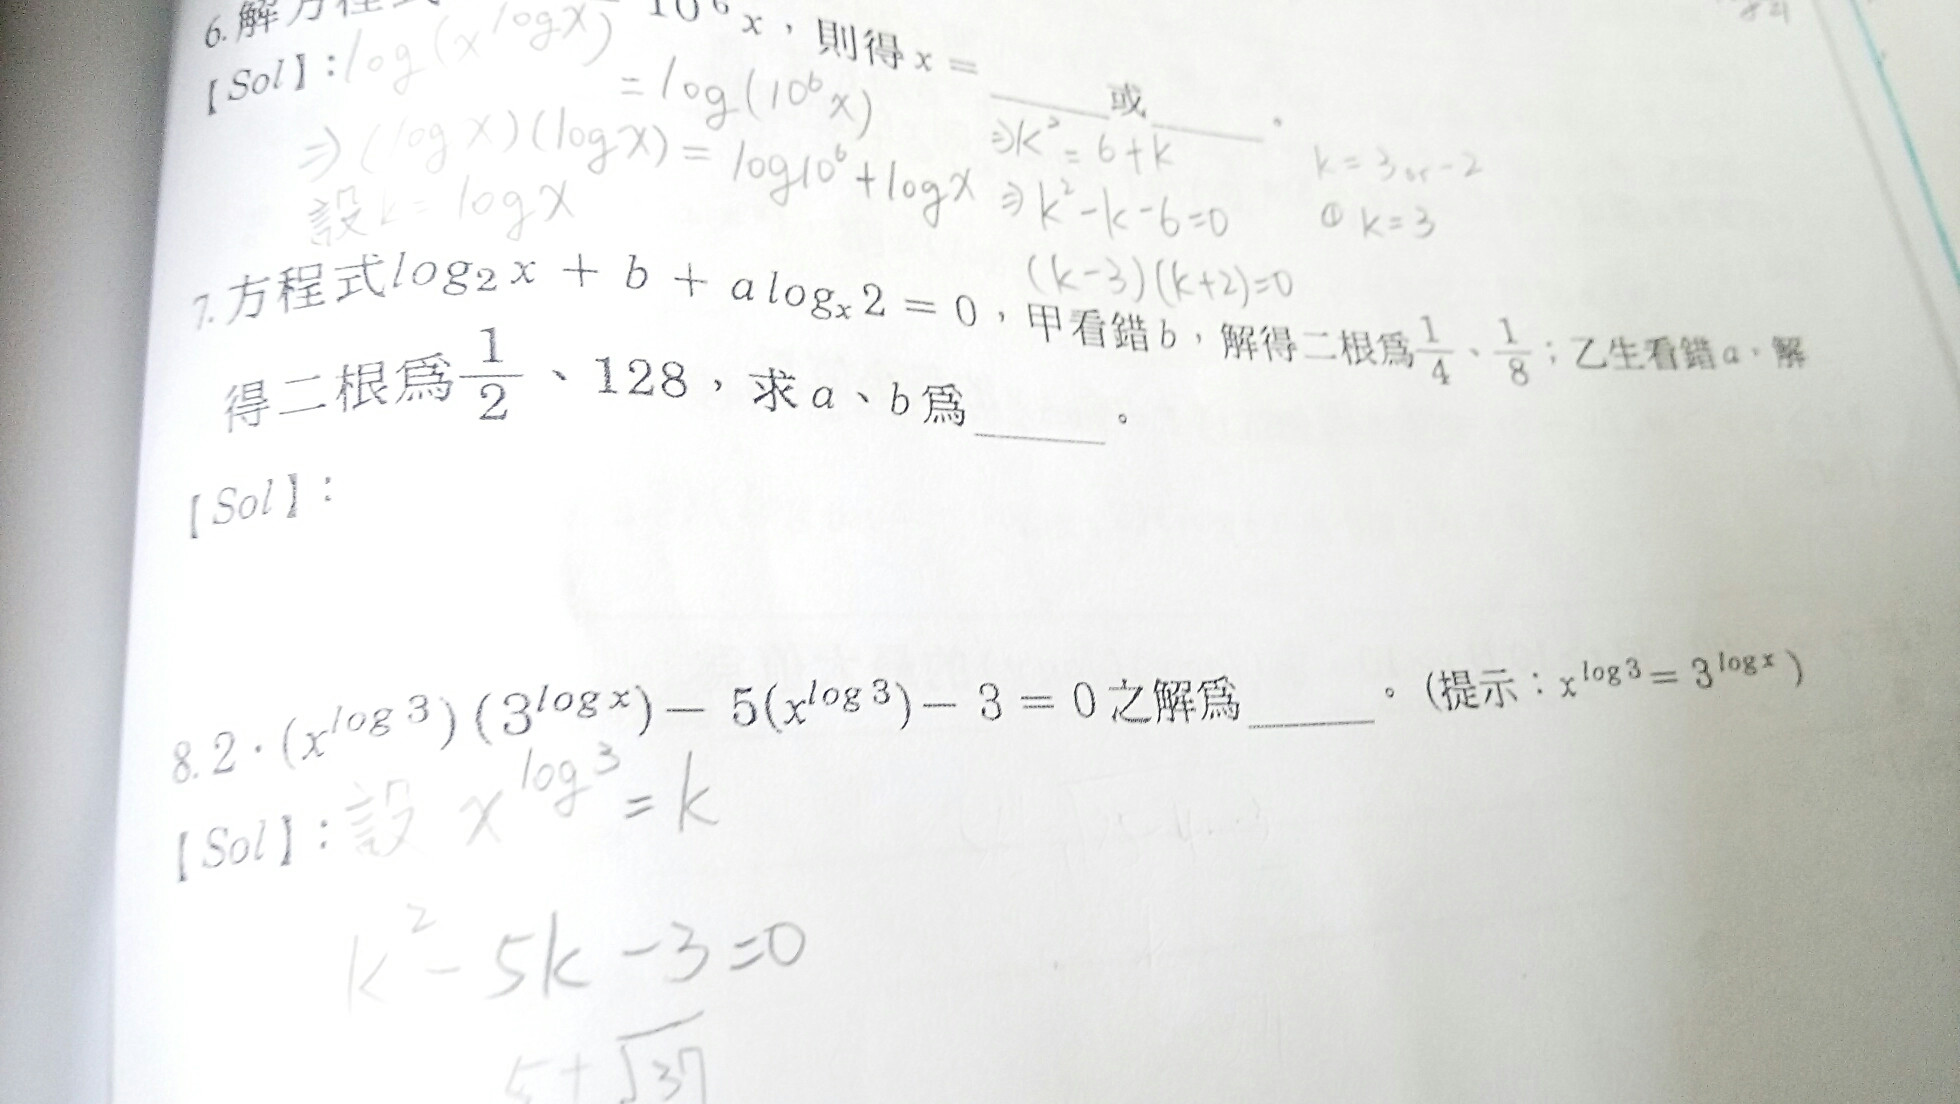 6.解方程式 10⁶x，則得x=____或____。
【Sol】:log(x^logx)
=log(10⁶x)
⇒(logx)(logx)=log10⁶+logx
設k=logx
⇒k²=6+k
⇒k²-k-6=0
(k-3)(k+2)=0
k=3or-2
① k=3
7.方程式log₂x + b + alogₓ2 = 0，甲看錯b，解得二根爲1/4、1/8；乙生看錯a，解
得二根爲1/2、128，求a、b爲____。
【Sol】:
8.2·(x^log3)(3^logx)－5(x^log3)－3=0之解爲____。(提示：x^log3=3^logx)
【Sol】:設 x^log3=k
k²-5k-3=0
5+√37